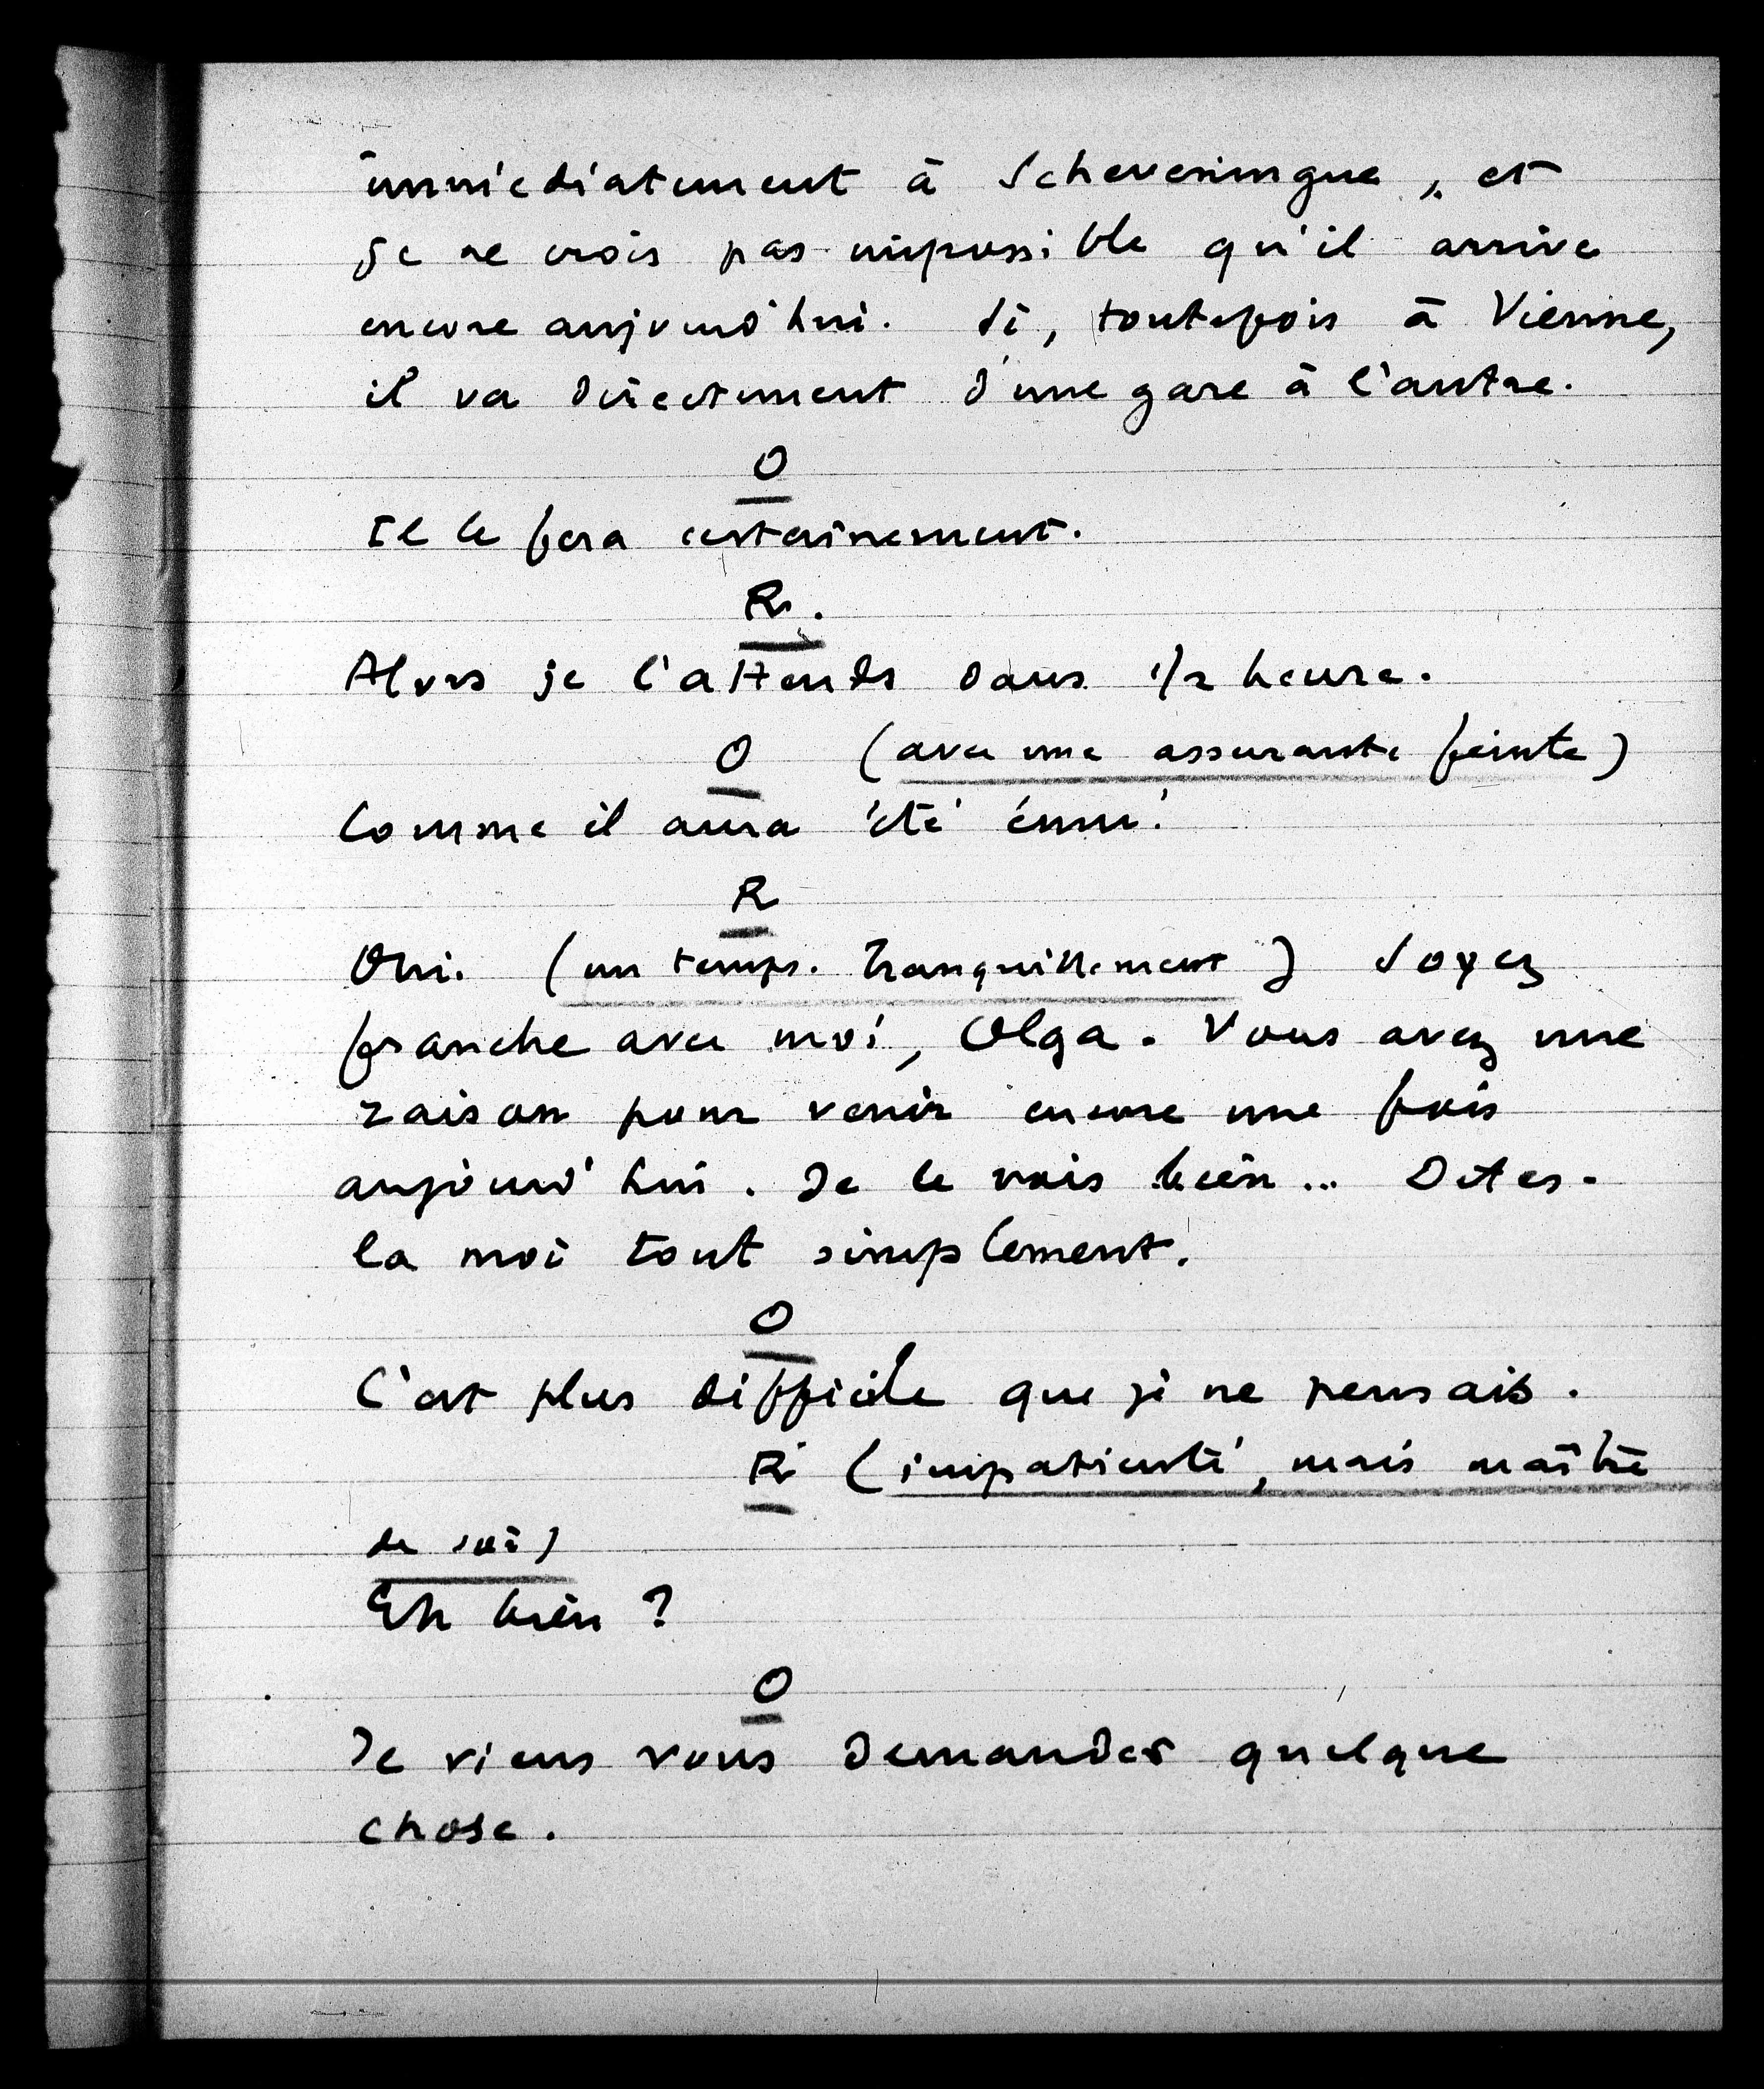 immédiatement à Scheveningue, et
je ne crois pas impossible qu'il arrive
encore aujourd'hui. Si, toutefois à Vienne,
il va directement d'une gare à l'autre.
O
Il le fera certainement.
R.
Alors je l'attends dans 1/2 heure.
O (avec une assurance feinte)
Comme il aura été ému!
R
Oui. (un temps. Tranquillement) Soyez
franche avec moi, Olga. Vous avez une
raison pour venir encore une fois
aujourd'hui. Je le vois bien... Dites-
la moi tout simplement.
O
C'est plus difficile que je ne pensais.
R (impatienté, mais maître
de soi)
Eh bien ?
O
Je viens vous demander quelque
chose.